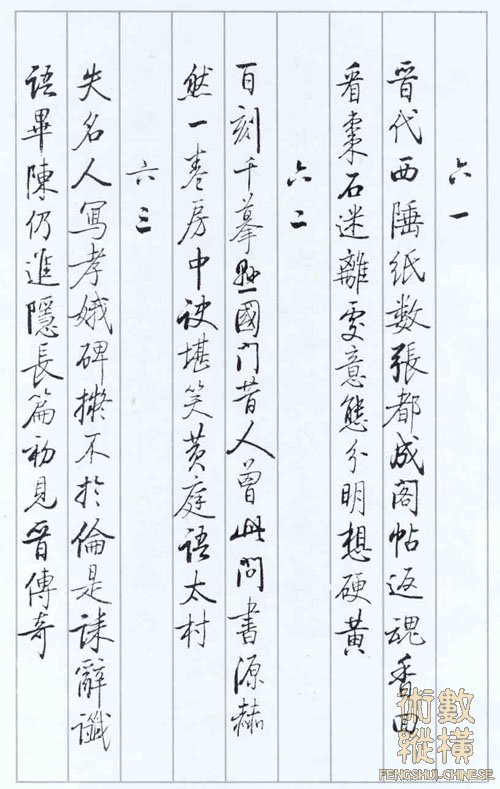 六一
晉代西陲紙數張都成閣帖返魂香回
看棗石迷離處意態分明想硬黃
六二
百刻千摹懸國門昔人曾此問書源赫
然一卷房中訣堪笑黃庭語太村
六三
失名人寫孝娥碑擬不於倫是誄辭讖
語畢陳仍進隱長篇初見晉傳奇
術數
縱橫
FENGSHUI-CHINESE